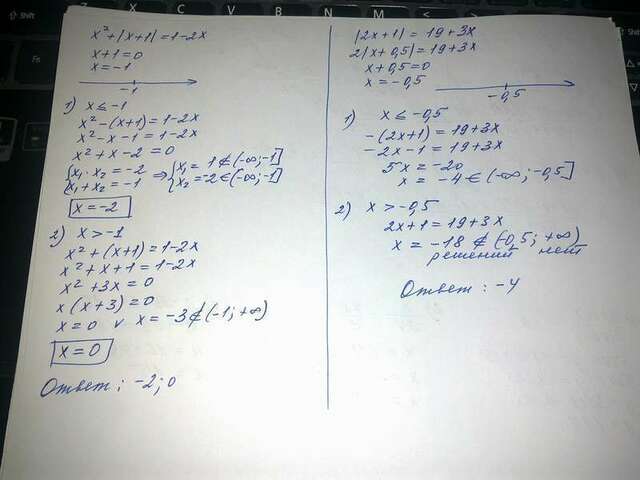 x² + |x+1| = 1-2x
x+1=0
x=-1
-1
1) x ≤ -1
x² - (x+1) = 1-2x
x² - x - 1 = 1-2x
x² + x - 2 = 0
{x₁ · x₂ = -2 ⇒ {x₁ = 1 ∉ (-∞; -1]
{x₁ + x₂ = -1 {x₂ = -2 ∈ (-∞; -1]
x = -2
2) x > -1
x² + (x+1) = 1-2x
x² + x + 1 = 1-2x
x² + 3x = 0
x(x+3) = 0
x = 0 ∨ x = -3 ∉ (-1; +∞)
x = 0
Ответ: -2; 0
|2x+1| = 19+3x
2|x+0,5| = 19+3x
x+0,5=0
x=-0,5
-0,5
1) x ≤ -0,5
-(2x+1) = 19+3x
-2x-1 = 19+3x
5x = -20
x = -4 ∈ (-∞; -0,5]
2) x > -0,5
2x+1 = 19+3x
x = -18 ∉ (-0,5; +∞)
решений нет
Ответ: -4